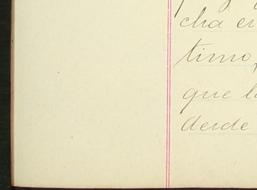 cha en
timo,
que l
desde